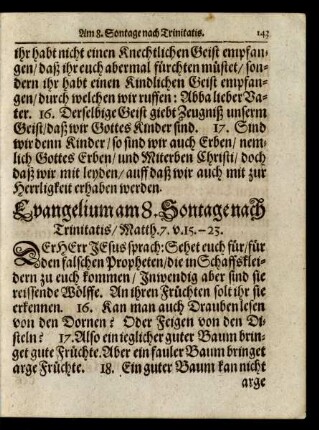 Am 8. Sontage nach Trinitatis. 143
ihr habt nicht einen Knechtlichen Geist empfan-
gen/ daß ihr euch abermal fürchten müstet/ son-
dern ihr habt einen Kindlichen Geist empfan-
gen/ durch welchen wir ruffen: Abba lieber Va-
ter. 16. Derselbige Geist giebt Zeugniß unserm
Geist/ daß wir Gottes Kinder sind. 17. Sind
wir denn Kinder/ so sind wir auch Erben/ nem-
lich Gottes Erben/ und Miterben Christi/ doch
daß wir mit leyden/ auff daß wir auch mit zur
Herrligkeit erhaben werden.
Evangelium am 8. Sontage nach
Trinitatis/ Matth. 7. v. 15.–23.
DEr HErr JEsus sprach: Sehet euch für/ für
den falschen Propheten/ die in Schaffsklei-
dern zu euch kommen/ Inwendig aber sind sie
reissende Wölffe. An ihren Früchten solt ihr sie
erkennen. 16. Kan man auch Drauben lesen
von den Dornen? Oder Feigen von den Di-
steln? 17. Also ein ieglicher guter Baum brin-
get gute Früchte. Aber ein fauler Baum bringet
arge Früchte. 18. Ein guter Baum kan nicht
arge